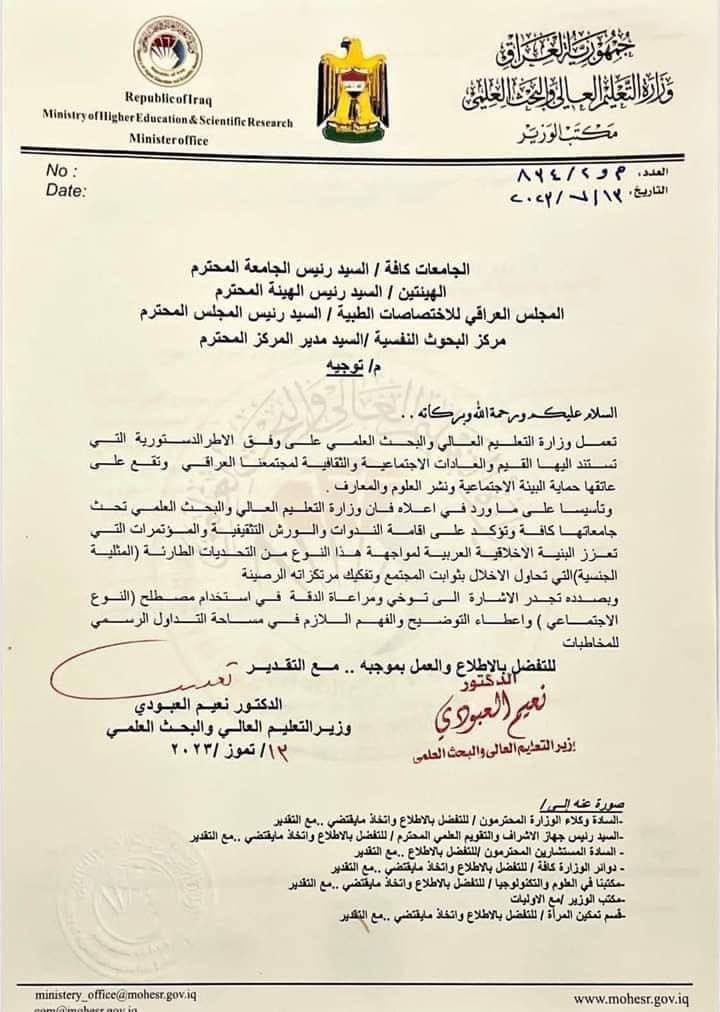 جمهورية العراق
وزارة التعليم العالي والبحث العلمي
مكتب الوزير
Republic of Iraq
Ministry of Higher Education & Scientific Research
Minister office
No :
Date:
العدد: م و ٢/ ٨٣٤
التاريخ: ١٣/ ٧/ ٢٠٢٣
الجامعات كافة / السيد رئيس الجامعة المحترم
الهيئتين / السيد رئيس الهيئة المحترم
المجلس العراقي للاختصاصات الطبية / السيد رئيس المجلس المحترم
مركز البحوث النفسية /السيد مدير المركز المحترم
م/ توجيه
السلام عليكم ورحمة الله وبركاته ..
تعمل وزارة التعليم العالي والبحث العلمي على وفق الاطر الدستورية التي
تستند اليها القيم والعادات الاجتماعية والثقافية لمجتمعنا العراقي وتقع على
عاتقها حماية البيئة الاجتماعية ونشر العلوم والمعارف .
وتأسيسا على ما ورد في اعلاه فان وزارة التعليم العالي والبحث العلمي تحث
جامعاتها كافة وتؤكد على اقامة الندوات والورش التثقيفية والمؤتمرات التي
تعزز البنية الاخلاقية العربية لمواجهة هذا النوع من التحديات الطارئة (المثلية
الجنسية)التي تحاول الاخلال بثوابت المجتمع وتفكيك مرتكزاته الرصينة
وبصدده تجدر الاشارة الى توخي ومراعاة الدقة في استخدام مصطلح (النوع
الاجتماعي ) واعطاء التوضيح والفهم اللازم في مساحة التداول الرسمي
للمخاطبات
للتفضل بالاطلاع والعمل بموجبه .. مع التقدير
الدكتور
نعيم العبودي
وزير التعليم العالي والبحث العلمي
الدكتور نعيم العبودي
وزير التعليم العالي والبحث العلمي
١٣/ تموز /٢٠٢٣
صورة عنه إلى/
-السادة وكلاء الوزارة المحترمون / للتفضل بالاطلاع واتخاذ مايقتضي ..مع التقدير
-السيد رئيس جهاز الاشراف والتقويم العلمي المحترم / للتفضل بالاطلاع واتخاذ مايقتضي ..مع التقدير
- السادة المستشارين المحترمون /للتفضل بالاطلاع ..مع التقدير
- دوائر الوزارة كافة / للتفضل بالاطلاع واتخاذ مايقتضي ..مع التقدير
-مكتبنا في العلوم والتكنولوجيا / للتفضل بالاطلاع واتخاذ مايقتضي ..مع التقدير
-مكتب الوزير /مع الاوليات
-قسم تمكين المرأة / للتفضل بالاطلاع واتخاذ مايقتضي ..مع التقدير
ministery_office@mohesr.gov.iq
www.mohesr.gov.iq